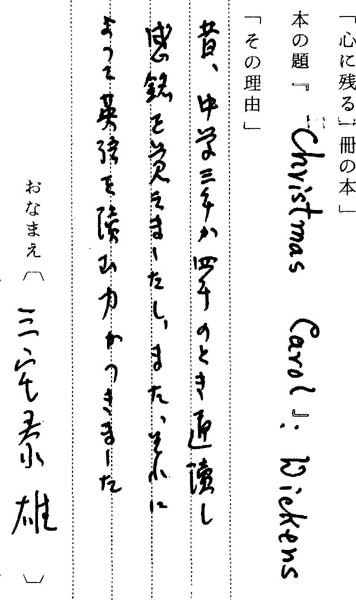 「心に残る一冊の本」
本の題『Christmas Carol』: Dickens
「その理由」
昔、中学三年か四年のとき通読し
感銘を覚えましたし、また、それに
よって英語を読む力がつきました
おなまえ〔三宅泰雄〕